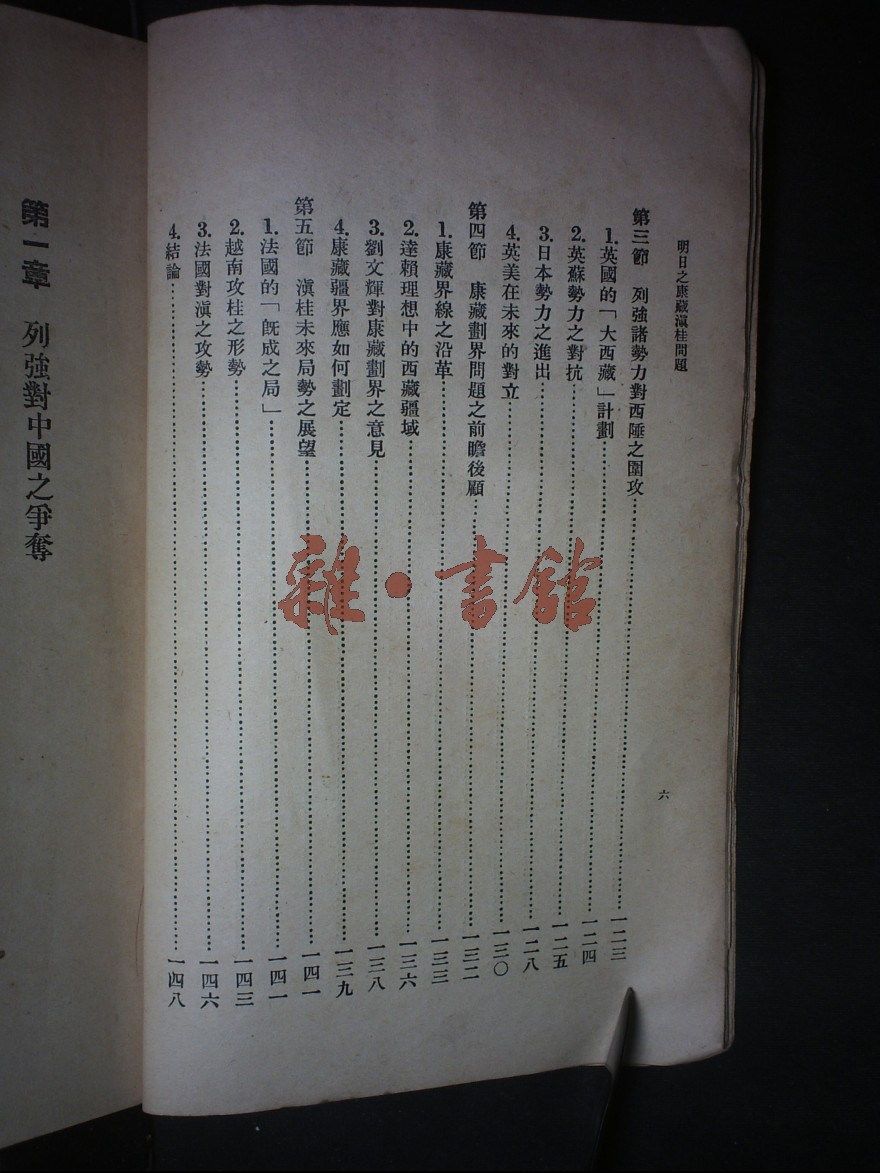 明日之康藏滇桂問題
第三節 列強諸勢力對西陲之圍攻……一二三
1.英國的「大西藏」計劃……一二四
2.英蘇勢力之對抗……一二五
3.日本勢力之進出……一二八
4.英美在未來的對立……一三〇
第四節 康藏劃界問題之前瞻後顧……一三二
1.康藏界線之沿革……一三三
2.達賴理想中的西藏疆域……一三六
3.劉文輝對康藏劃界之意見……一三八
4.康藏疆界應如何劃定……一三九
第五節 滇桂未來局勢之展望……一四一
1.法國的「旣成之局」……一四一
2.越南攻桂之形勢……一四三
3.法國對滇之攻勢……一四六
4.結論……一四八
六
第一章 列強對中國之爭奪
雜·書館